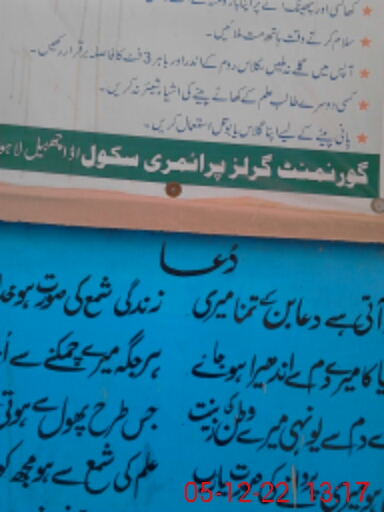 کھانسی اور چھینک
سلام کرتے وقت ہاتھ مت ملائیں۔
آپس میں گلے نہ ملیں، کلاس روم کے اندر اور باہر 3 فٹ کا فاصلہ برقرار رکھیں۔
کسی دوسرے طالب علم کے کھانے پینے کی اشیاء شیئر نہ کریں۔
پانی پینے کے لیے اپنا گلاس یا بوتل استعمال کریں۔
گورنمنٹ گرلز پرائمری سکول اڈا چھبیل لاہو
دُعا
آتی ہے دعا بن کے تمنا میری زندگی شمع کی صورت ہو خدا
کا میرے دم سے اندھیرا ہو جائے ہر جگہ میرے چمکنے سے اُ
دم سے یونہی میرے وطن کی زینت جس طرح پھول سے ہوتی
ہو میری پروانے کی صورت یارب علم کی شمع سے ہو مجھ کو
05-12-22 13:17